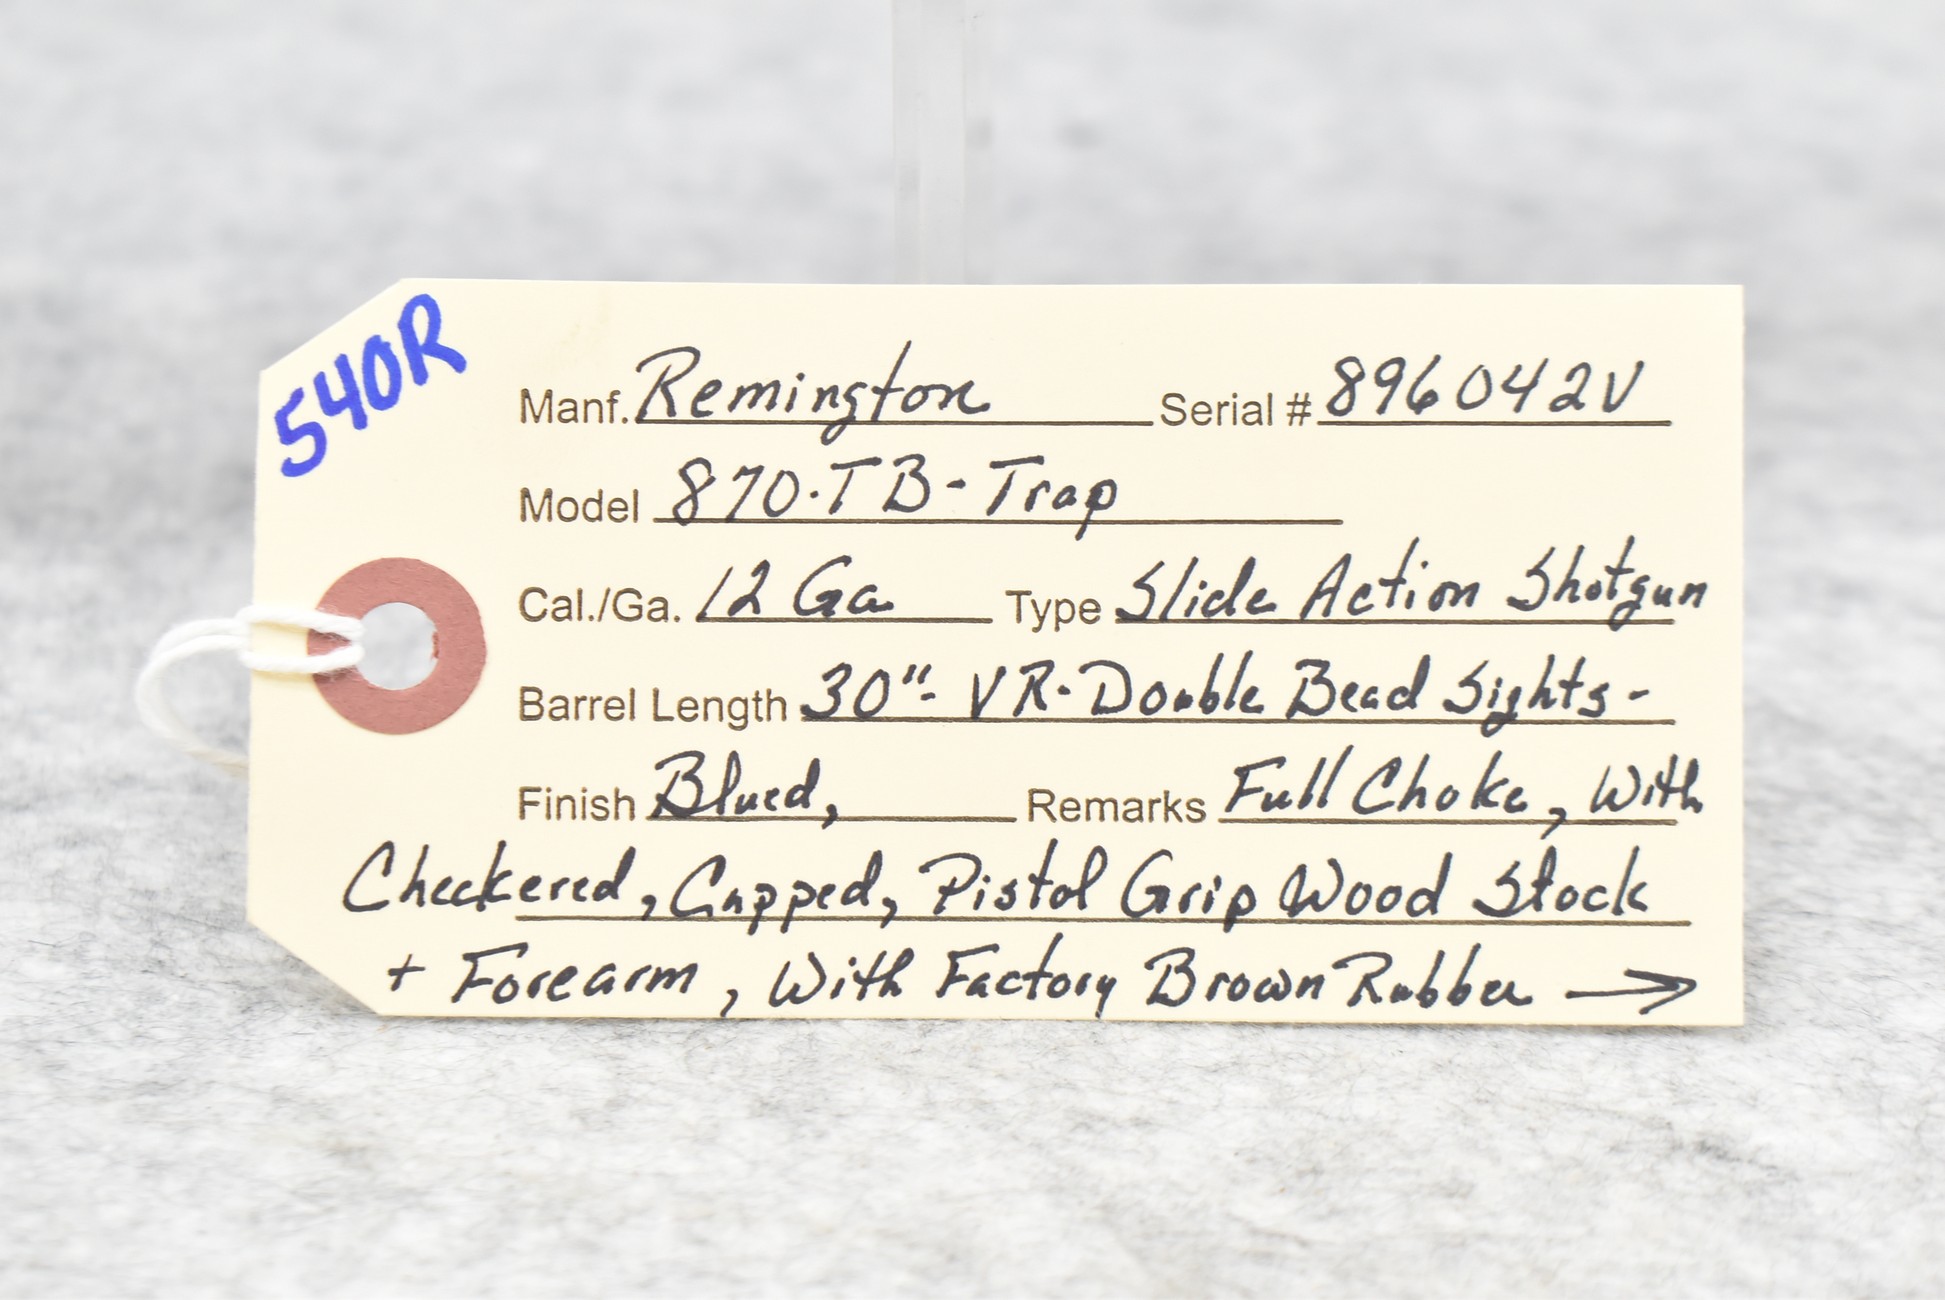 540R
Manf. Remington Serial # 896042V
Model 870·TB-Trap
Cal./Ga. 12 Ga Type Slide Action Shotgun
Barrel Length 30"- VR-Double Bead Sights-
Finish Blued, Remarks Full Choke, With
Checkered, Capped, Pistol Grip Wood Stock
+ Forearm, With Factory Brown Rubber →